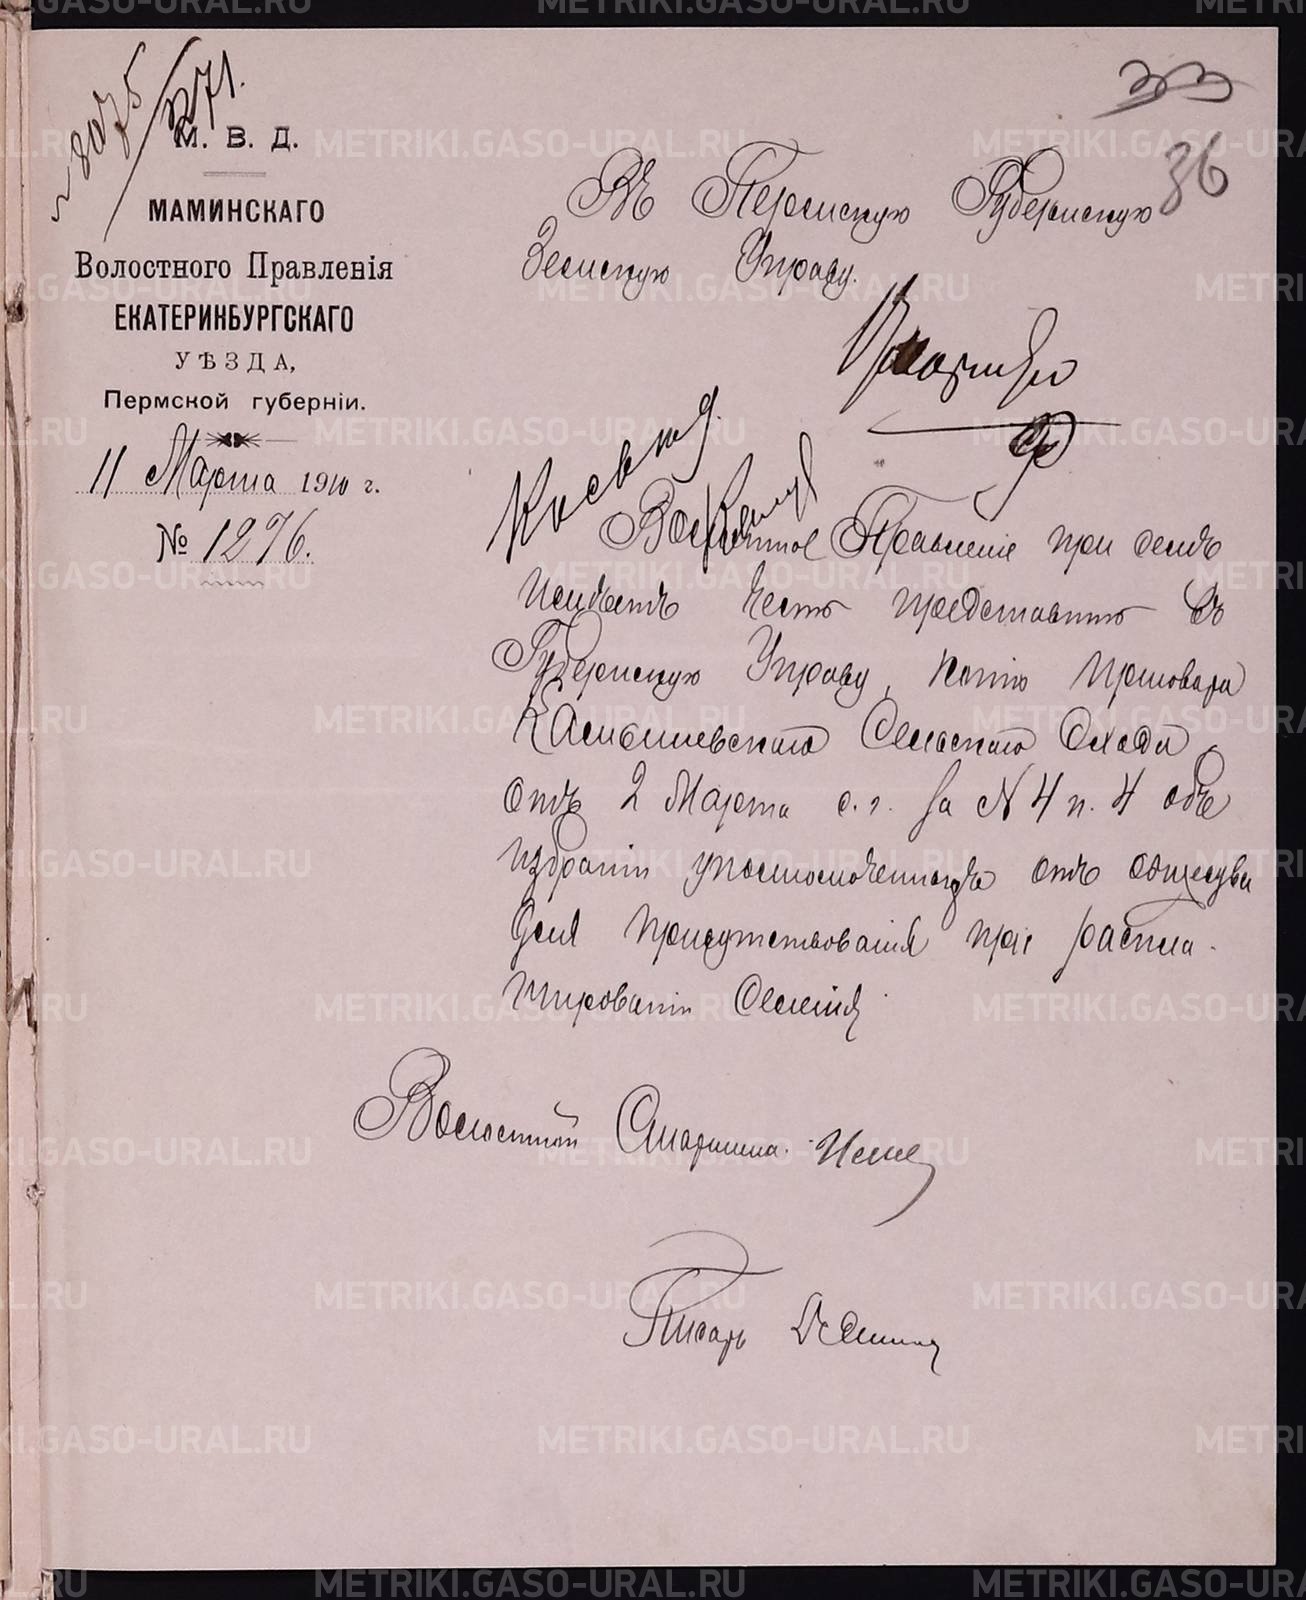 № 8075
271.
33
36
М. В. Д.
МАМИНСКАГО
Волостного Правленія
ЕКАТЕРИНБУРГСКАГО
УѢЗДА,
Пермской губерніи.
11 Марта 1910 г.
№ 1276.
Въ Пермскую Губернскую
Земскую Управу.
Волостное Правленіе при семъ
имѣетъ честь представить въ
Губернскую Управу, копію приговора
Камышевскаго Сельскаго Схода
отъ 2 Марта с. г. за № 4 п. 4 объ
избраніи уполномоченнаго отъ общества
для присутствованія при распла-
нированіи Селенія
Волостной Старшина
Писарь
METRIKI.GASO-URAL.RU